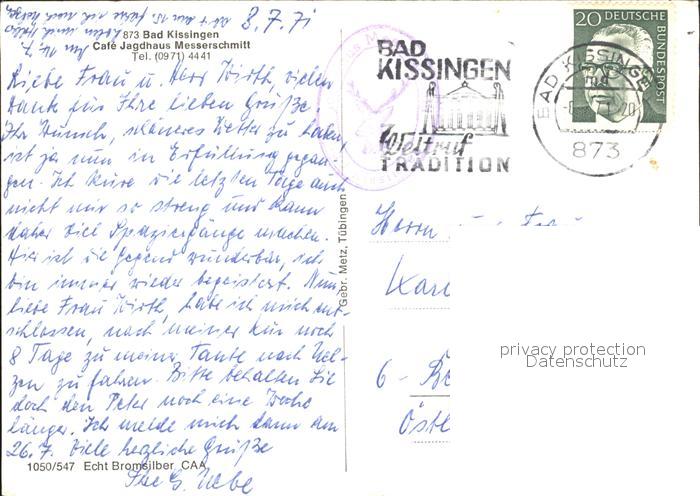 8.7.71
873 Bad Kissingen
Café Jagdhaus Messerschmitt
Tel. (0971) 4441
Liebe Frau u. Herr Wirth, vielen
Dank für Ihre lieben Grüße.
Ihr Wunsch, schöneres Wetter zu haben,
ist ja nun in Erfüllung gegan-
gen. Ich kure die letzten Tage auch
nicht mir so streng und kann
daher viel Spaziergänge machen.
Hier ist die Gegend wunderbar, ich
bin immer wieder begeistert. Nun
liebe Frau Wirth, habe ich mich ent-
schlossen, nach meiner Kur noch
8 Tage zu meiner Tante nach Uel-
zen zu fahren. Bitte behalten Sie
doch den Peter noch eine Woche
länger. Ich melde mich dann am
26.7. Viele herzliche Grüße
Ihre G.
1050/547 Echt Bromsilber CAA
Gebr. Metz, Tübingen
BAD
KISSINGEN
Weltruf
TRADITION
20 DEUTSCHE
BUNDESPOST
BAD KISSINGEN
873
Herrn
6 -
privacy protection
Datenschutz